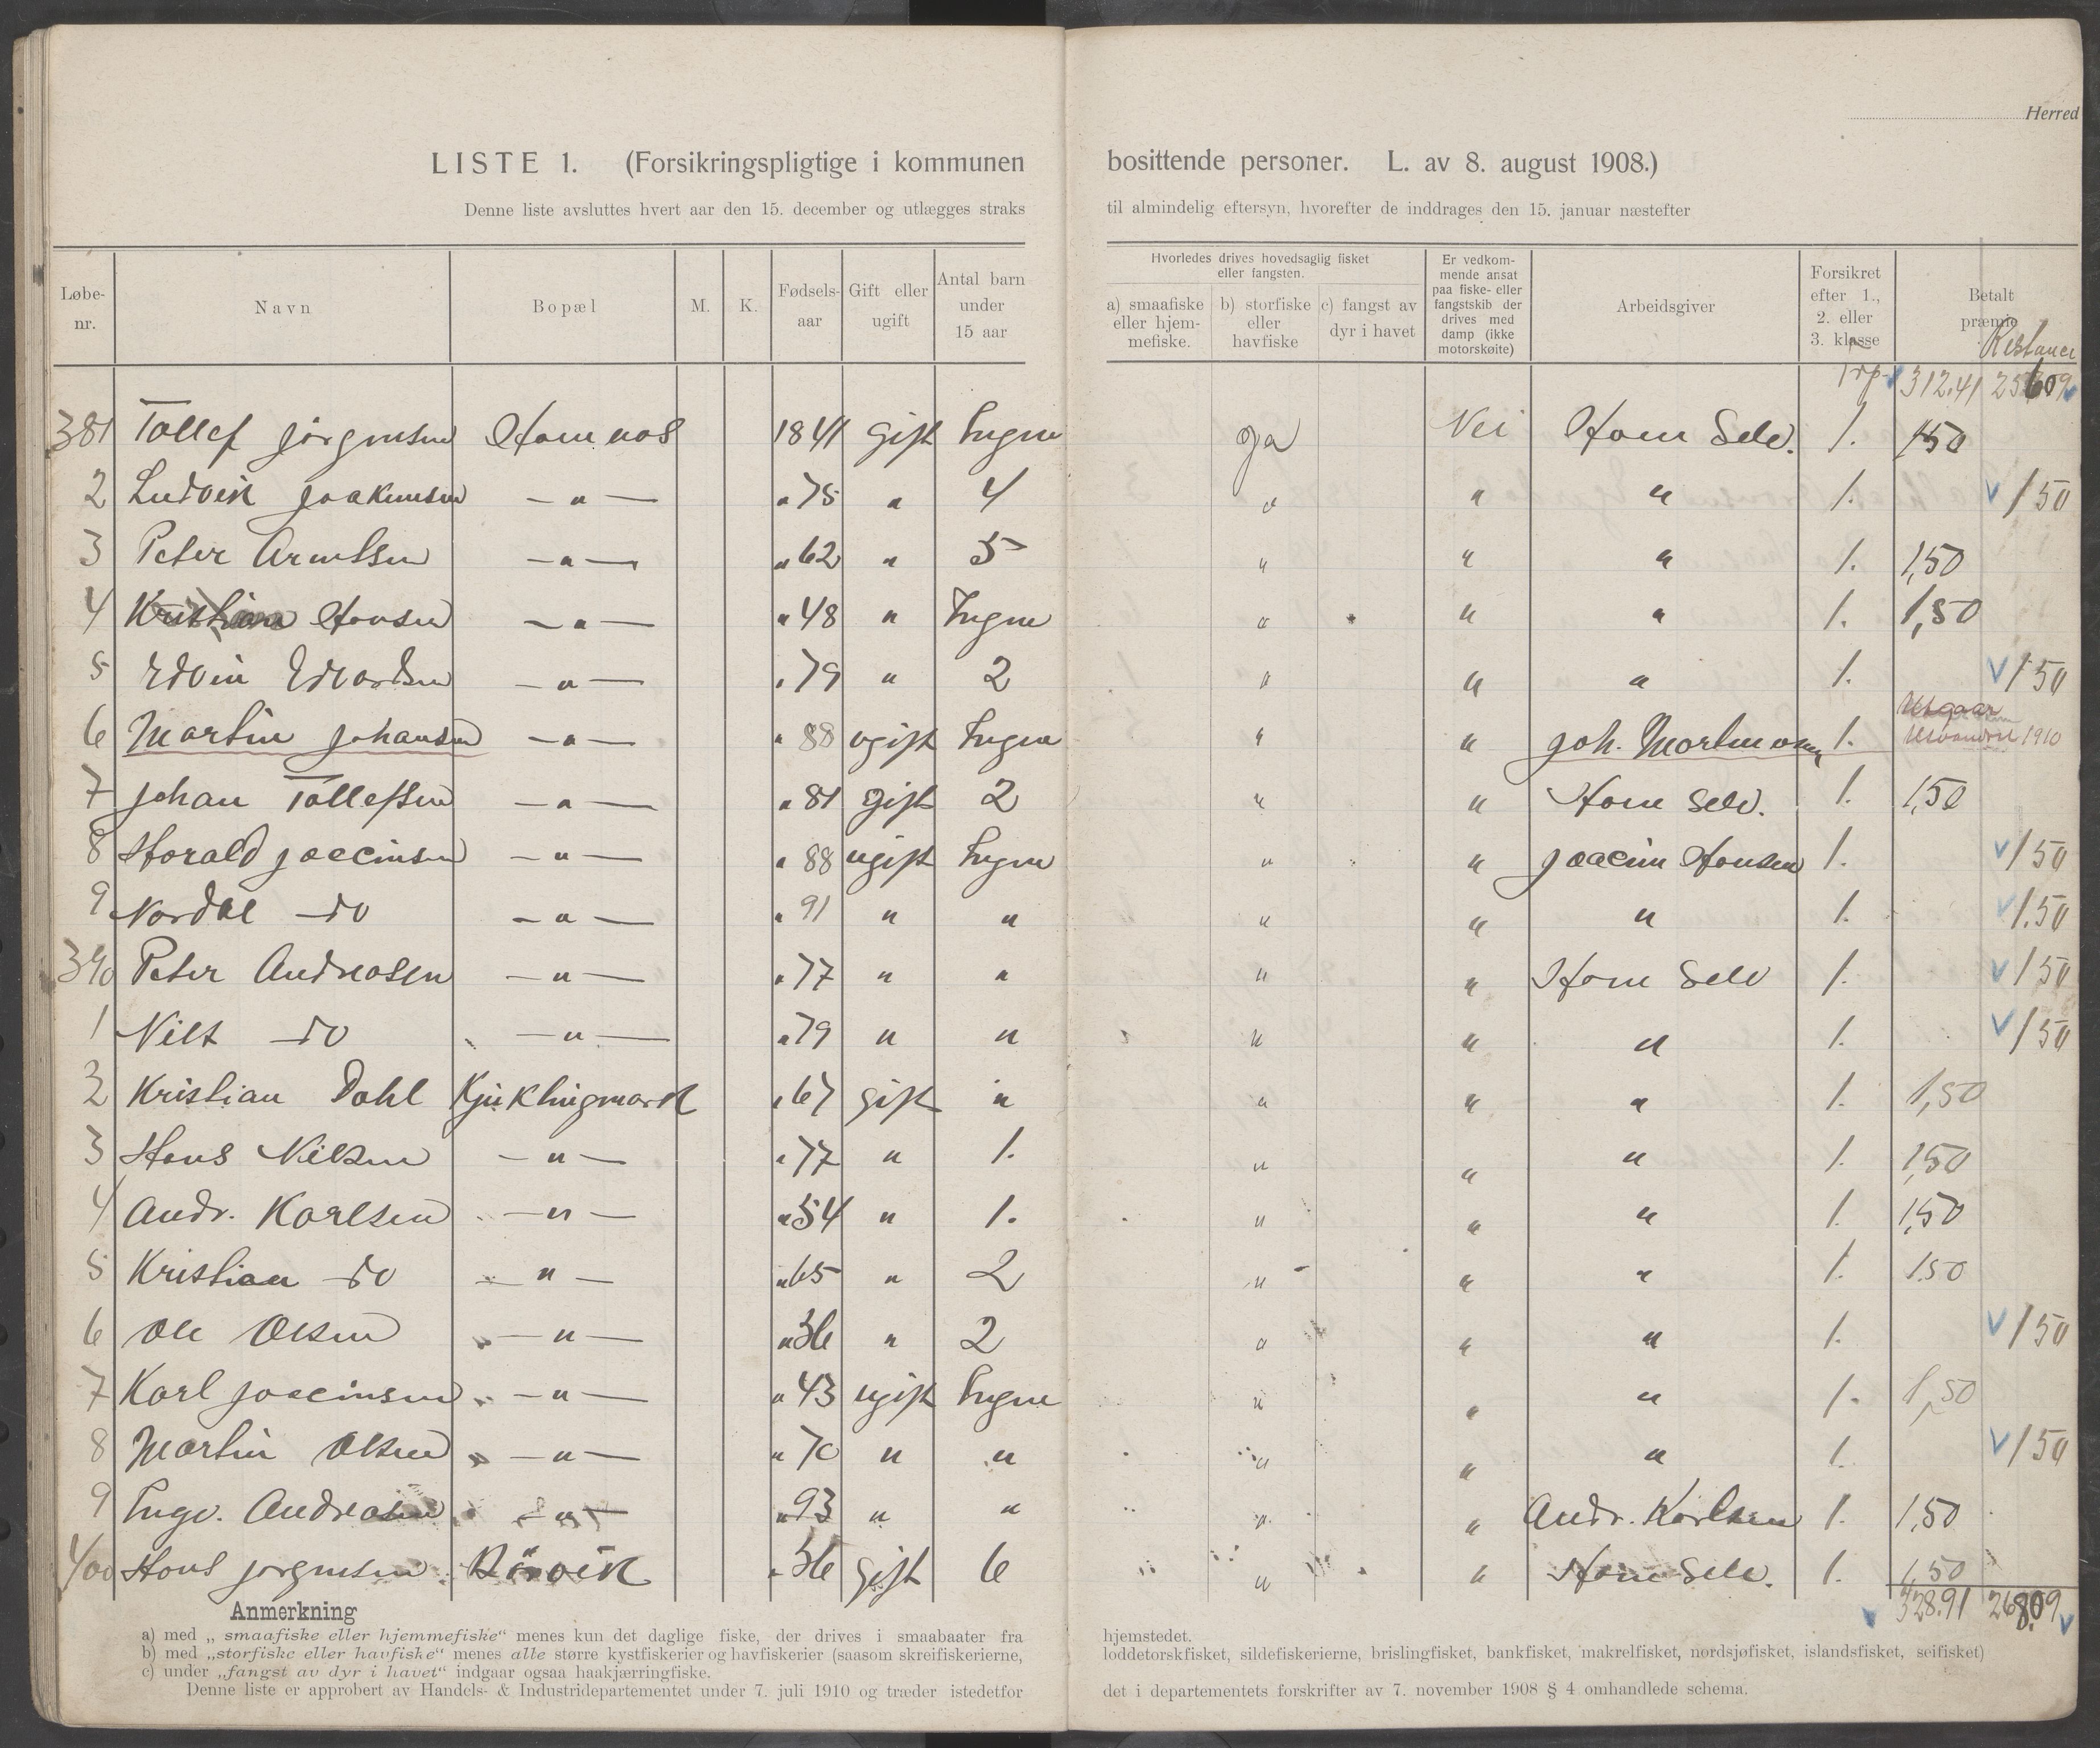 Herred
LISTE 1. (Forsikringspligtige i kommunen bosittende personer. L. av 8. august 1908.)
Denne liste avsluttes hvert aar den 15. december og utlægges straks til almindelig eftersyn, hvorefter de inddrages den 15. januar næstefter
Løbe-nr. Navn Bopæl M. K. Fødsels-aar Gift eller ugift Antal barn under 15 aar Hvorledes drives hovedsaglig fisket eller fangsten. a) smaafiske eller hjem-mefiske. b) storfiske eller havfiske c) fangst av dyr i havet Er vedkom-mende ansat paa fiske- eller fangstskib der drives med damp (ikke motorskøite) Arbeidsgiver Forsikret efter 1., 2. eller 3. klasse Betalt præmie Restance
Trp. 312.41 25609
381 Tollef Jörgensen Hamnes 1841 gift Ingen Ja Nei Ham Selv. 1. 1,50
2 Ludvik Joakimsen — " — " 75 " 4 " " " 1. √ 1 50
3 Peter Arentsen — " — " 62 " 5 " " " 1. 1,50
4 Kristian Hansen — " — " 48 " Ingen " " " 1. 1,50
5 Edvin Edvardsen — " — " 79 " 2 " " " 1. √ 1 50
6 Martin Johansen — " — " 88 ugift Ingen " " Joh. Martinosen 1. Utgaar Utvandret 1910
7 Johan Tollefsen — " — " 81 gift 2 " " Ham Selv. 1. 1,50
8 Harald Joacimsen — " — " 88 ugift Ingen " " Joacim Hansen 1. √ 1 50
9 Nordal — do — " — " 91 " " " " " 1. √ 1.50
390 Peter Andreasen — " — " 77 " " " " Ham Selv 1. √ 1 50
1 Nils — do — " — " 79 " " " " " 1. √ 1 50
2 Kristian Dahl Kjuklingmark " 67 gift " " " " 1. 1,50
3 Hans Nilsen — " — " 77 " 1. " " " 1. 1,50
4 Andr. Karlsen — " — " 54 " 1. " " " 1. 1,50
5 Kristian — do — " — " 65 " 2 " " " 1. 1.50
6 Ole Olsen — " — " 36 " 2 " " " 1. √ 1 50
7 Karl Joacimsen — " — " 43 ugift Ingen " " " 1. 1,50
8 Martin Olsen — " — " 70 " " " " " 1. √ 1 50
9 Ingv. Andreasen — " — " 93 " " " " Andr. Karlsen 1. 1,50
400 Hans Jörgensen Rörvik " 36 gift 6 " " Ham Selv. 1. 1,50
328.91 268.09
Anmerkning
a) med „smaafiske eller hjemmefiske“ menes kun det daglige fiske, der drives i smaabaater fra hjemstedet.
b) med „storfiske eller havfiske“ menes alle større kystfiskerier og havfiskerier (saasom skreifiskerierne, loddetorskfisket, sildefiskerierne, brislingfisket, bankfisket, makrelfisket, nordsjøfisket, islandsfisket, seifisket)
c) under „fangst av dyr i havet“ indgaar ogsaa haakjærringfiske.
Denne liste er approbert av Handels- & Industridepartementet under 7. juli 1910 og træder istedetfor det i departementets forskrifter av 7. november 1908 § 4 omhandlede schema.